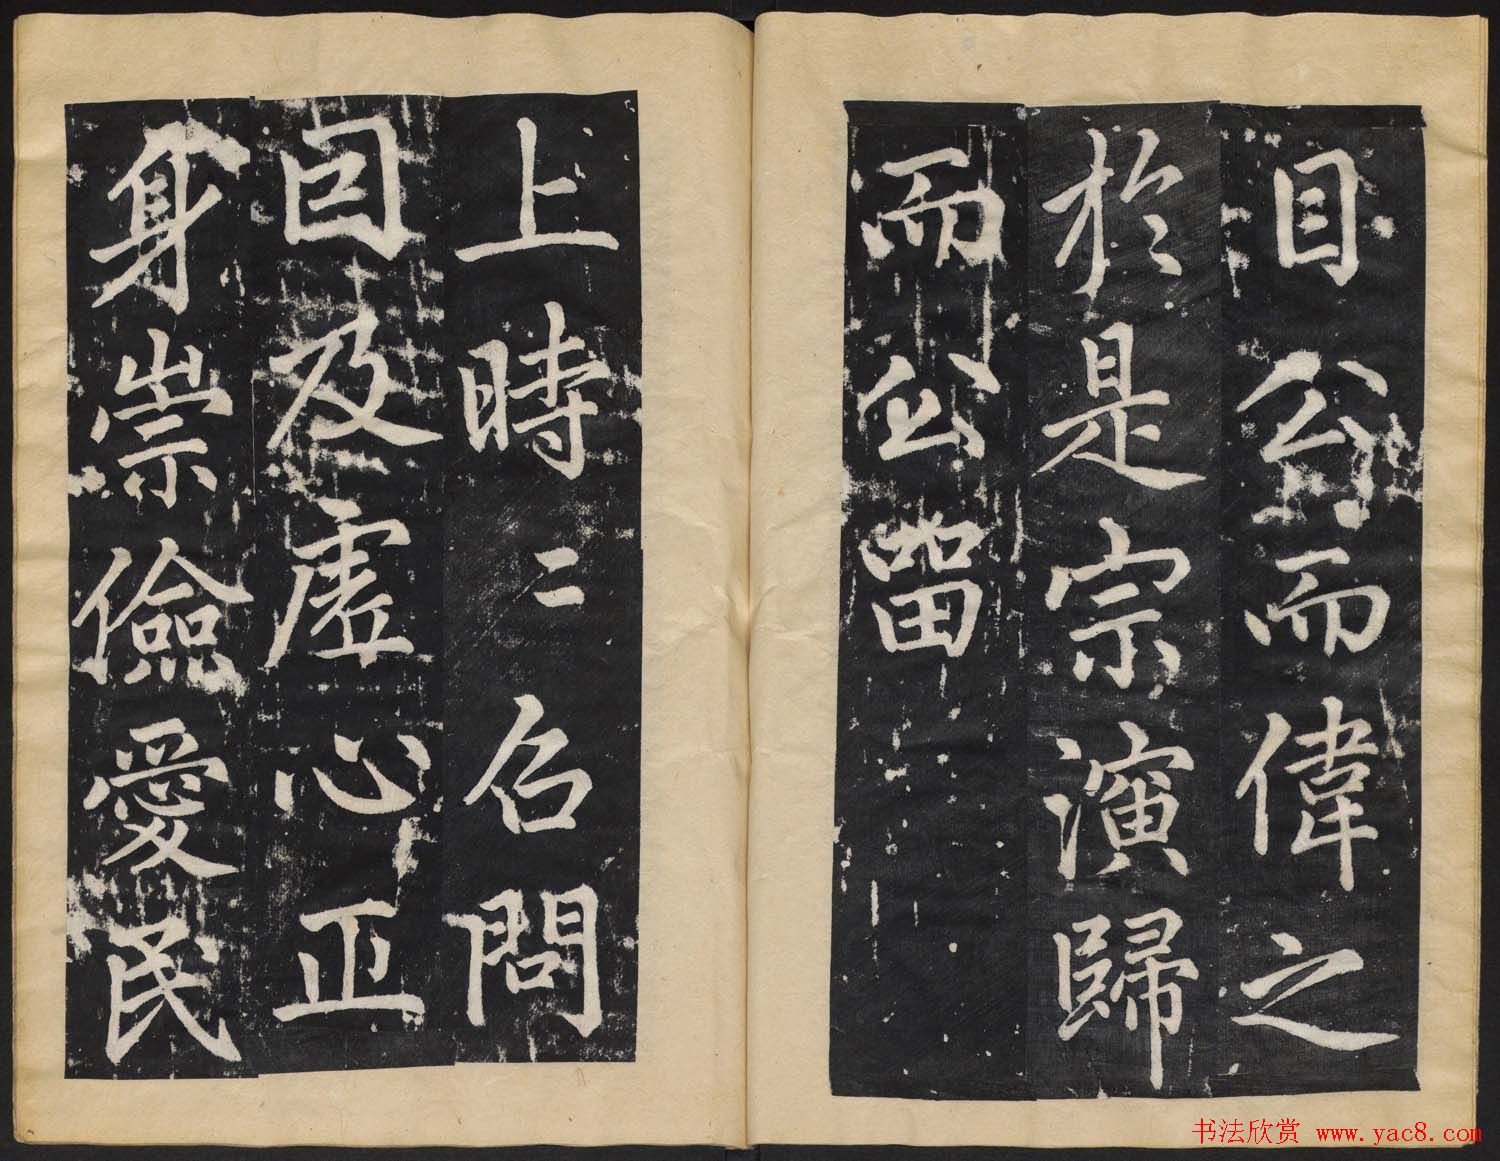 目公而偉之
於是宗演歸
而公留
上時〻召問
因及虛心正
身崇儉愛民
书法欣赏 www.yac8.com